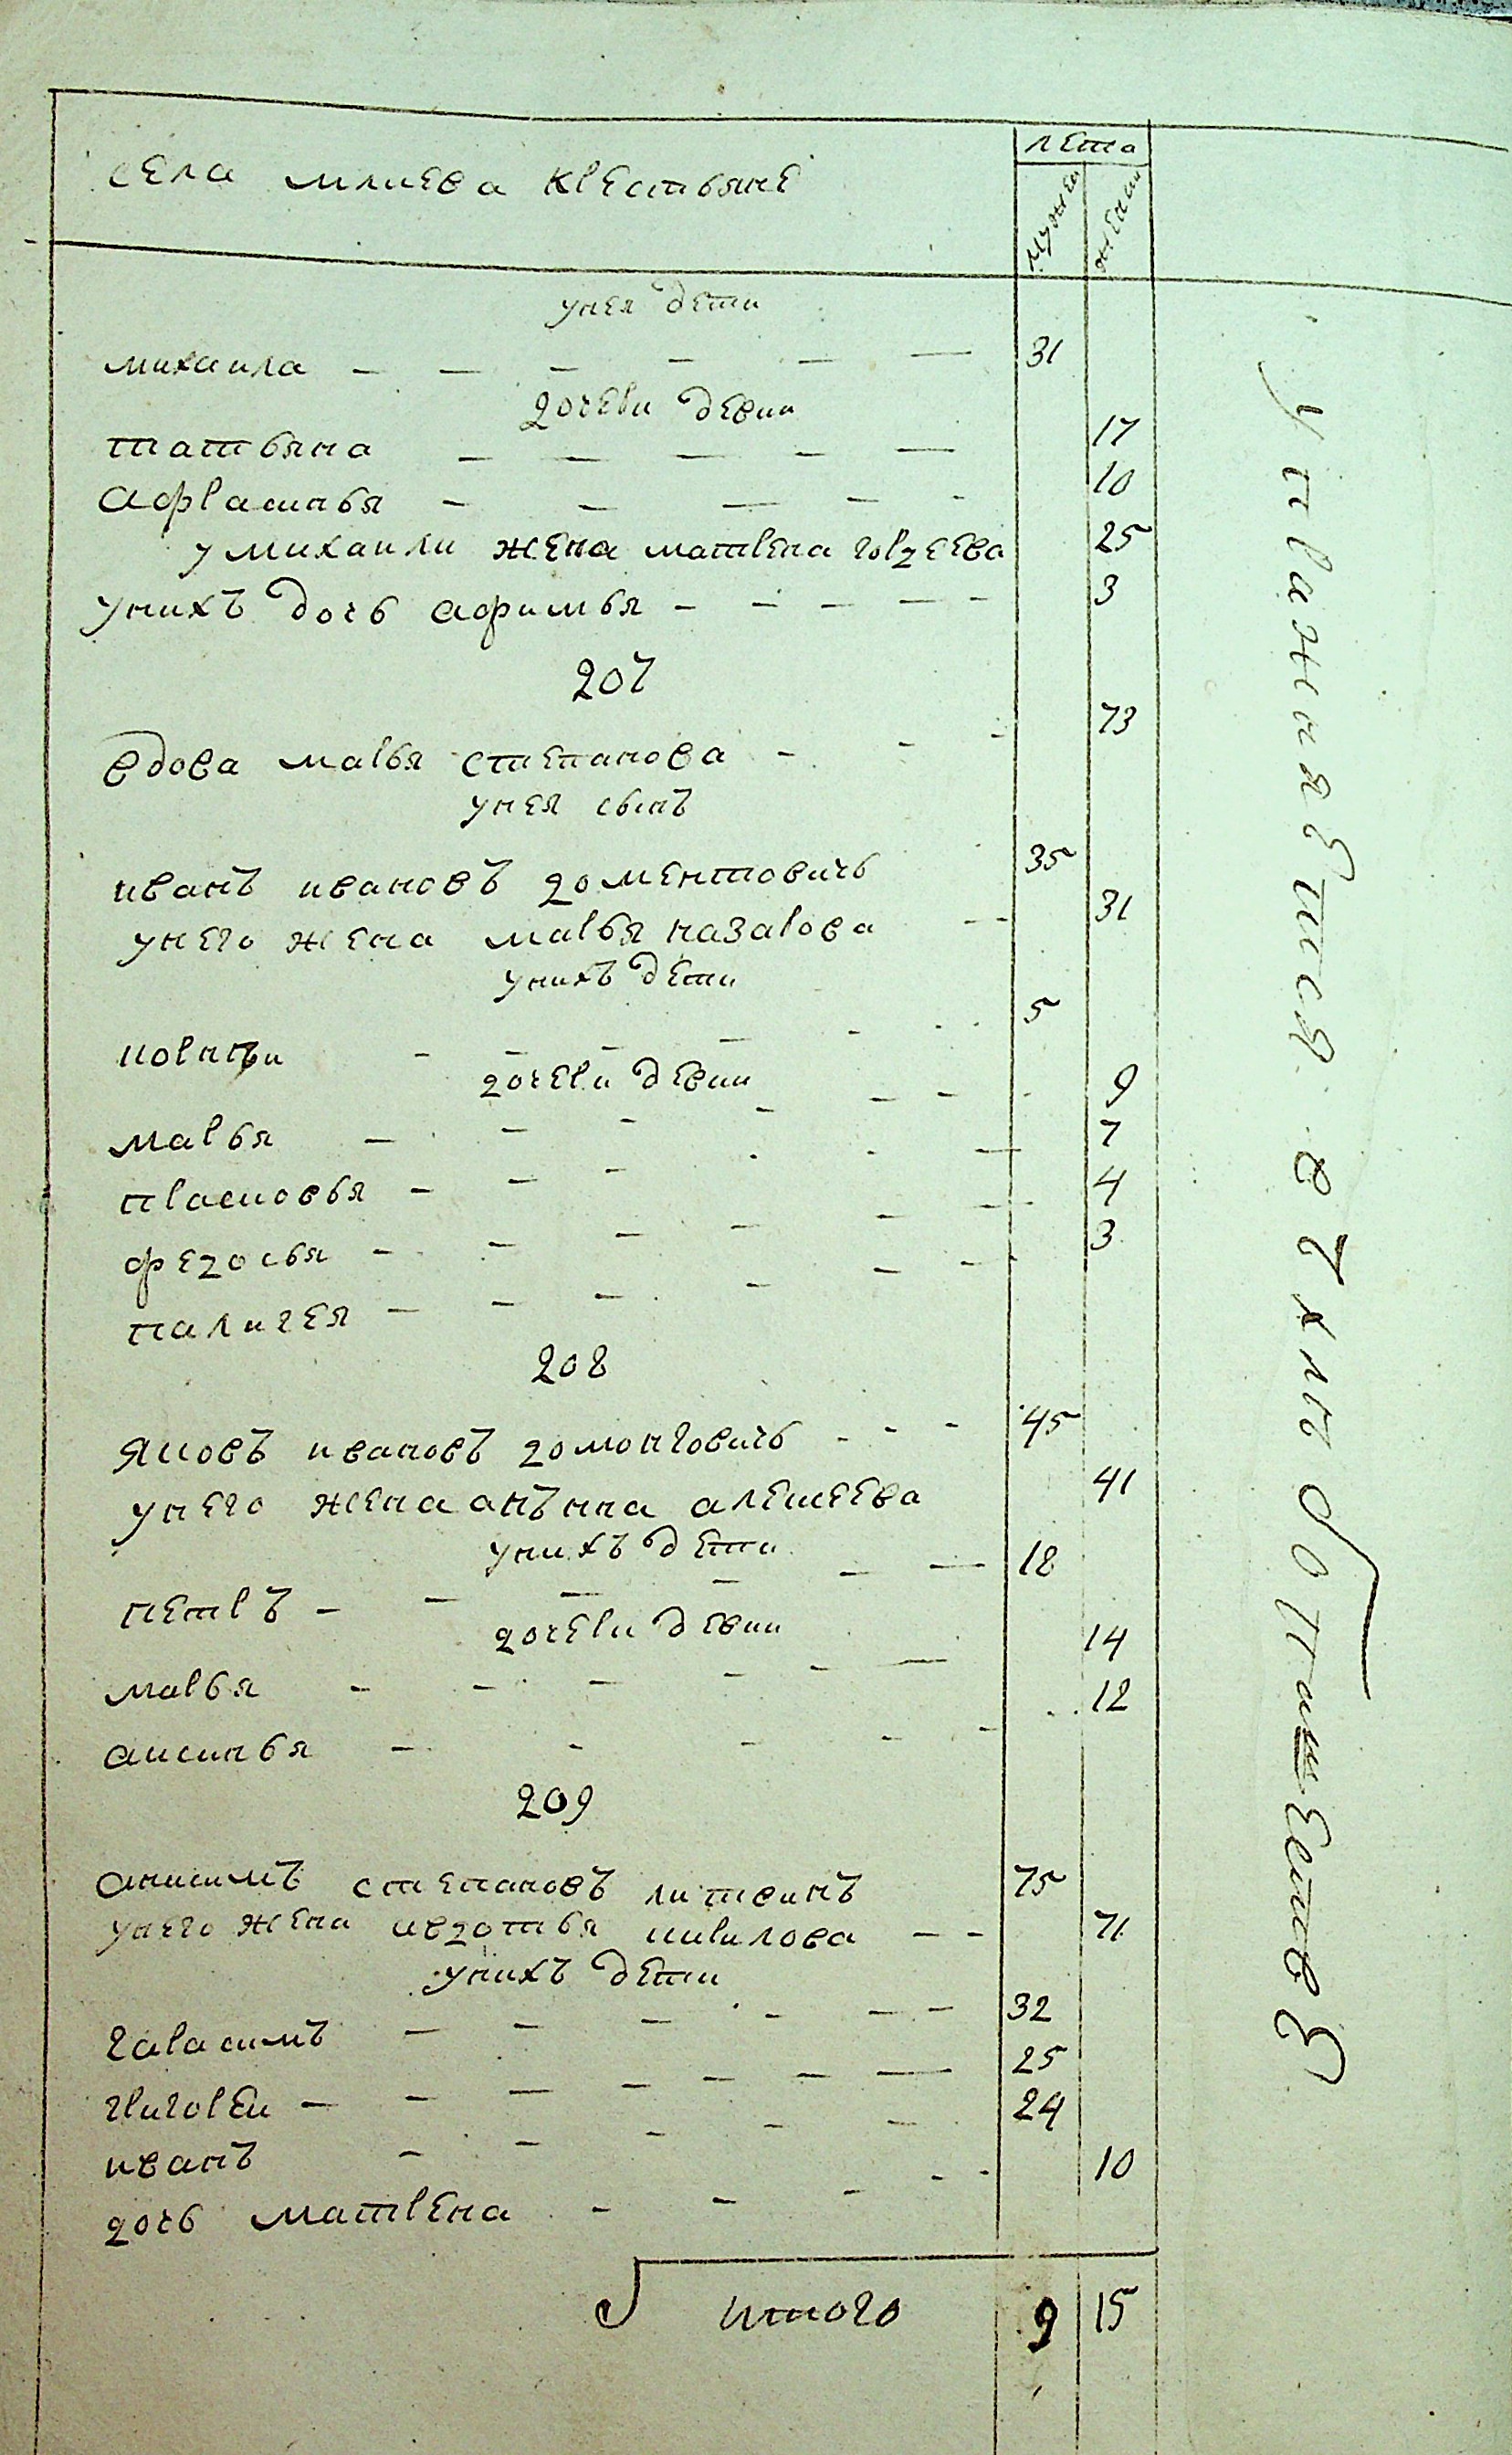 села млиева крестьяне
лета
мужеи
женщи
унея дети
михаила — — — — — — 31
дочери девки
татьяна — — — — — 17
афрасинья — — — — — 10
у михаили жена матрена гордеева 25
унихъ дочь афимья — — — — — 3
207
вдова марья степанова — — — 73
унея сынъ
иванъ ивановъ доментовичь 35
унего жена марья назарова — — 31
унихъ дети
корнѣи — — — — — — 5
дочери девки
марья — — — — — — — 9
прасковья — — — — — — 7
федосья — — — — — — 4
палигея — — — — — — 3
208
яковъ ивановъ домонтовичь — — — 45
унего жена анънна алексеева 41
унихъ дети
петръ — — — — — — 18
дочери девки
марья — — — — — — 14
аксинья — — — — — 12
209
анисимъ степановъ литвинъ 75
унего жена ивдотья кирилова — — 71
унихъ дети
гарасимъ — — — — — — 32
григореи — — — — — — — 25
иванъ — — — — — 24
дочь матрена — — — — — 10
итого 9 15
упражняются в хлибопашестве